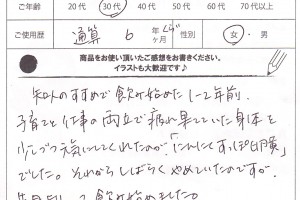 ご年齢 20代 30代 40代 50代 60代 70代以上
ご使用歴 通算 6 年 ヶ月 ぐらい 性別 女・男
商品をお使い頂いたご感想をお書きください。
イラストも大歓迎です♪
知人のすすめで飲み始めた1~2年前。
子育てと仕事の両立で疲れ果てていた身体を
少しづつ元気にしてくれたのが「にんにくすっぽ卵黄」
でした。それからしばらくやめていたのですが、
飲み始めました。